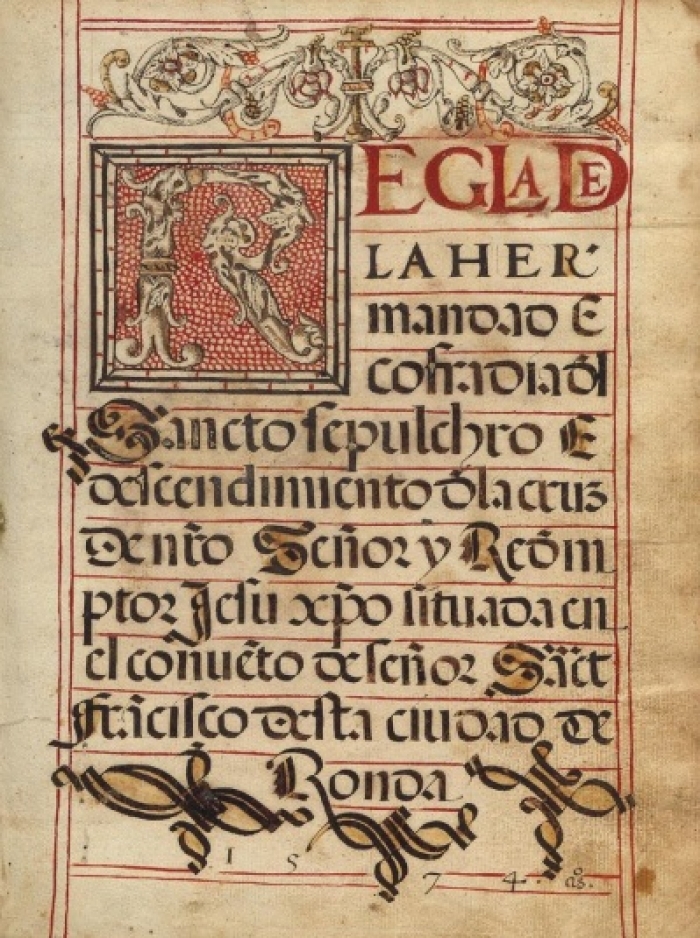 REGLA DE
LA HER
mandad E
cofradia dl
Sancto sepulchro E
descendimiento d̃la cruz
de nr̃o Señor y Redẽm
ptor Jesu xp̃o situada en
el conuẽto de señor Sãct
frãcisco desta ciudad de
Ronda
1574. aº̃s.